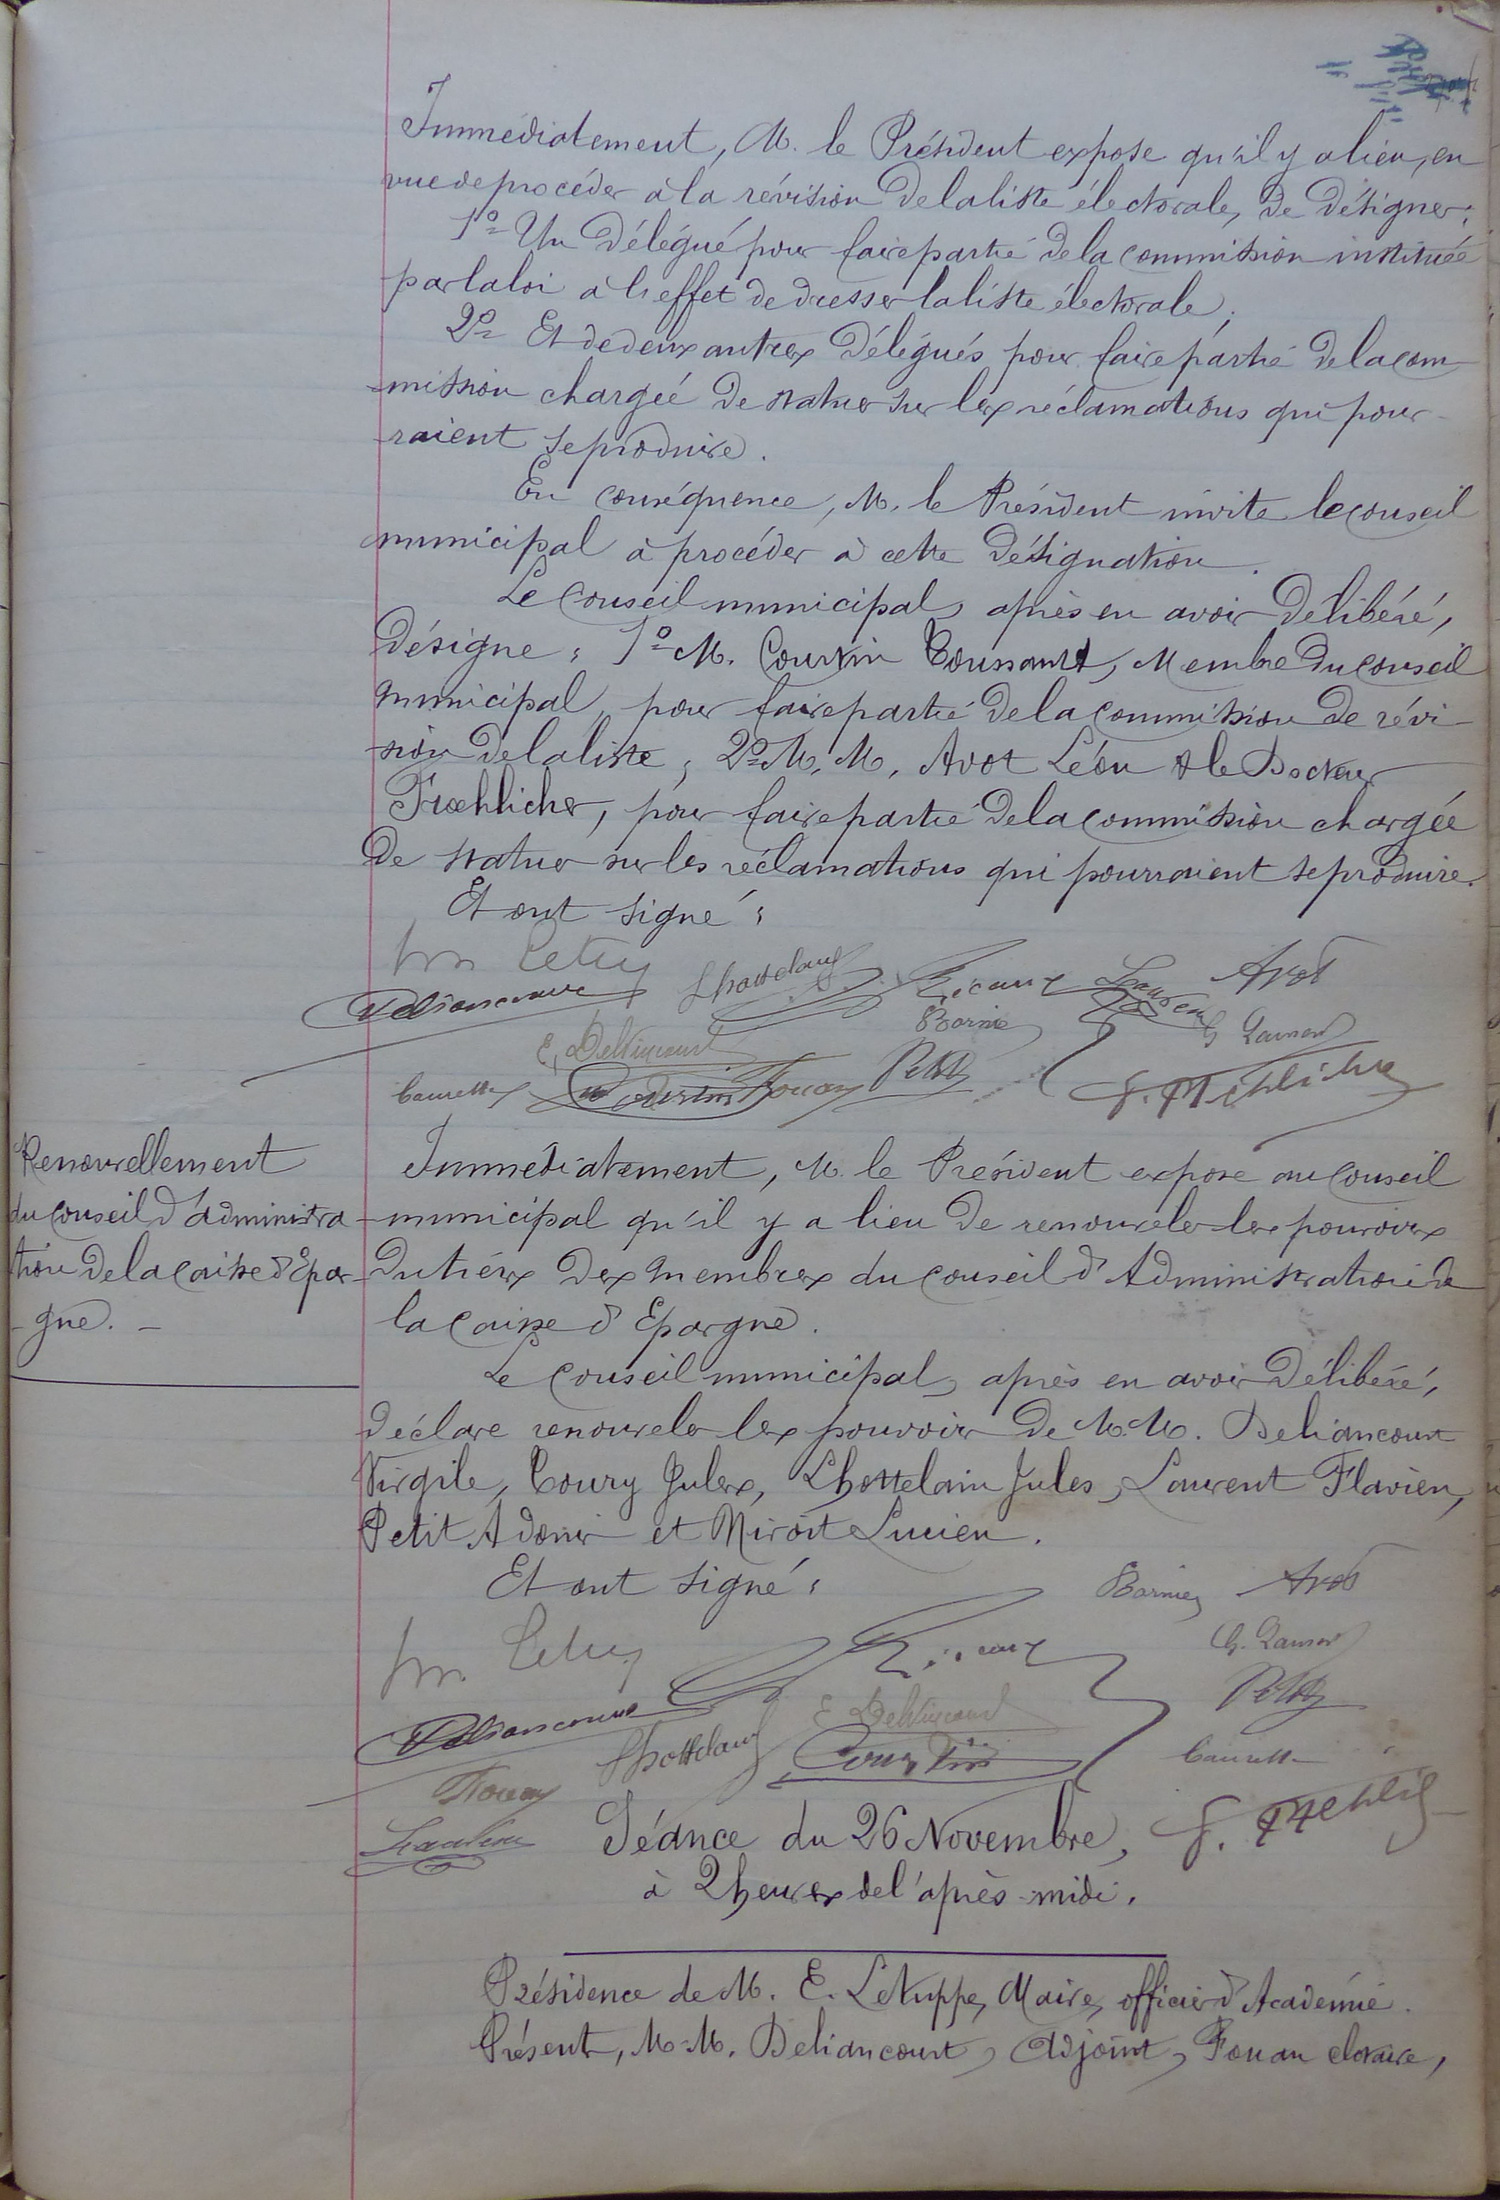 Immédiatement, M. le Président expose qu'il y a lieu, en
vue de procéder à la révision de la liste électorale, de désigner :
1º Un délégué pour faire partie de la commission instituée
par la loi à l'effet de dresser la liste électorale ;
2º Et de deux autres délégués pour faire partie de la com
-mission chargée de statuer sur les réclamations qui pour-
-raient se produire.
En conséquence, M. le Président invite le conseil
municipal à procéder à cette désignation.
Le Conseil municipal, après en avoir délibéré,
désigne : 1º M. Courtin Toussaint, Membre du conseil
municipal, pour faire partie de la commission de révi-
-sion de la liste ; 2º M. M. Avot Léon & le Docteur
Froehlicher, pour faire partie de la commission chargée
de statuer sur les réclamations qui pourraient se produire.
Et ont signé :
Deliancourt Lhottelain Avot
E. Delvincourt Barnier
Courtin Fouan Petit
Renouvellement
du Conseil d'administra
-tion de la caisse d'Epar
-gne. -
Immédiatement, M. le Président expose au Conseil
municipal qu'il y a lieu de renouveler les pouvoirs
du tiers des membres du conseil d'Administration de
la Caisse d'Epargne.
Le Conseil municipal, après en avoir délibéré,
déclare renouveler les pouvoir de M.M. Deliancourt
Virgile, Toury Jules, Lhottelain Jules, Laurent Flavien,
Petit Adonir et Miroit Lucien.
Et ont signé :
Barnier Avot
Deliancourt E. Delvincourt Petit
Lhottelain Courtin
Fouan
Séance du 26 Novembre,
à 2 heures de l'après-midi.
Présidence de M. E. Letuppe, Maire, officier d'Académie.
Présent, M. M. Deliancourt, Adjoint, Fouan clotaire,